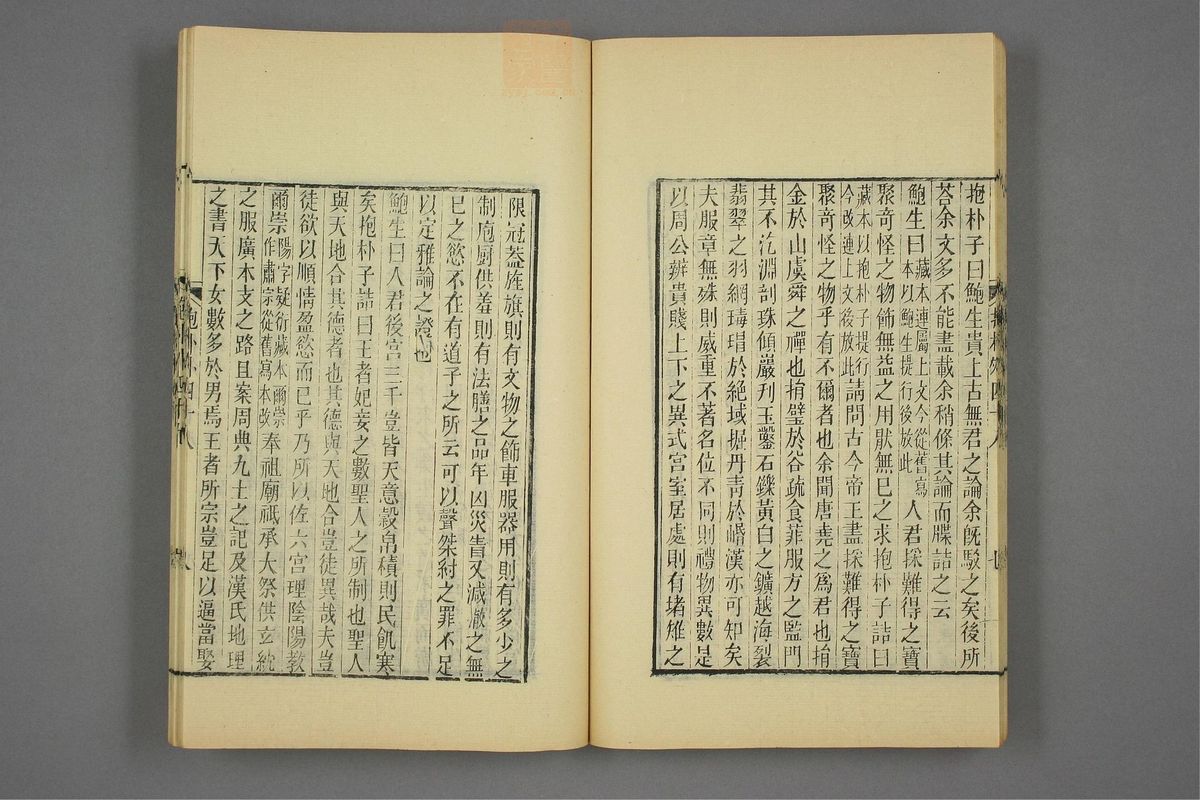 抱朴子曰鮑生貴上古無君之論余旣駮之矣後所
荅余文多不能盡載余稍條其論而牒詰之云
鮑生曰藏本連屬上文今從舊寫本以鮑生提行後放此人君採難得之寶
聚奇怪之物飾無益之用猒無已之求抱朴子詰曰
藏本以抱朴子提行今改連上文後放此請問古今帝王盡採難得之寶
聚奇怪之物乎有不爾者也余聞唐堯之爲君也捐
金於山虞舜之禪也捐璧於谷疏食菲服方之監門
其不汔淵剖珠傾巖刋玉鑿石鑠黃白之鑛越海裂
翡翠之羽網瑇瑁於絶域握丹青於嶓漢亦可知矣
夫服章無殊則威重不著名位不同則禮物異數是
以周公辨貴賤上下之異式宮室居處則有堵雉之
限冠蓋旌旗則有文物之飾車服器用則有多少之
制庖厨供羞則有法膳之品年凶災眚又減撤之無
已之慾不在有道子之所云可以聲桀紂之罪不足
以定雅論之證也
鮑生曰人君後宮三千豈皆天意穀帛積則民飢寒
矣抱朴子詰曰王者妃妾之數聖人之所制也聖人
與天地合其德者也其德與天地合豈徒異哉夫豈
徒欲以順情盈慾而已乎乃所以佐六宮理陰陽教
爾崇陽字疑衍藏本爾崇作肅宗從舊寫本改奉祖廟祗承大祭供玄紞
之服廣本支之路且案周典九土之記及漢氏地理
之書天下女數多於男焉王者所宗豈足以逼當娶